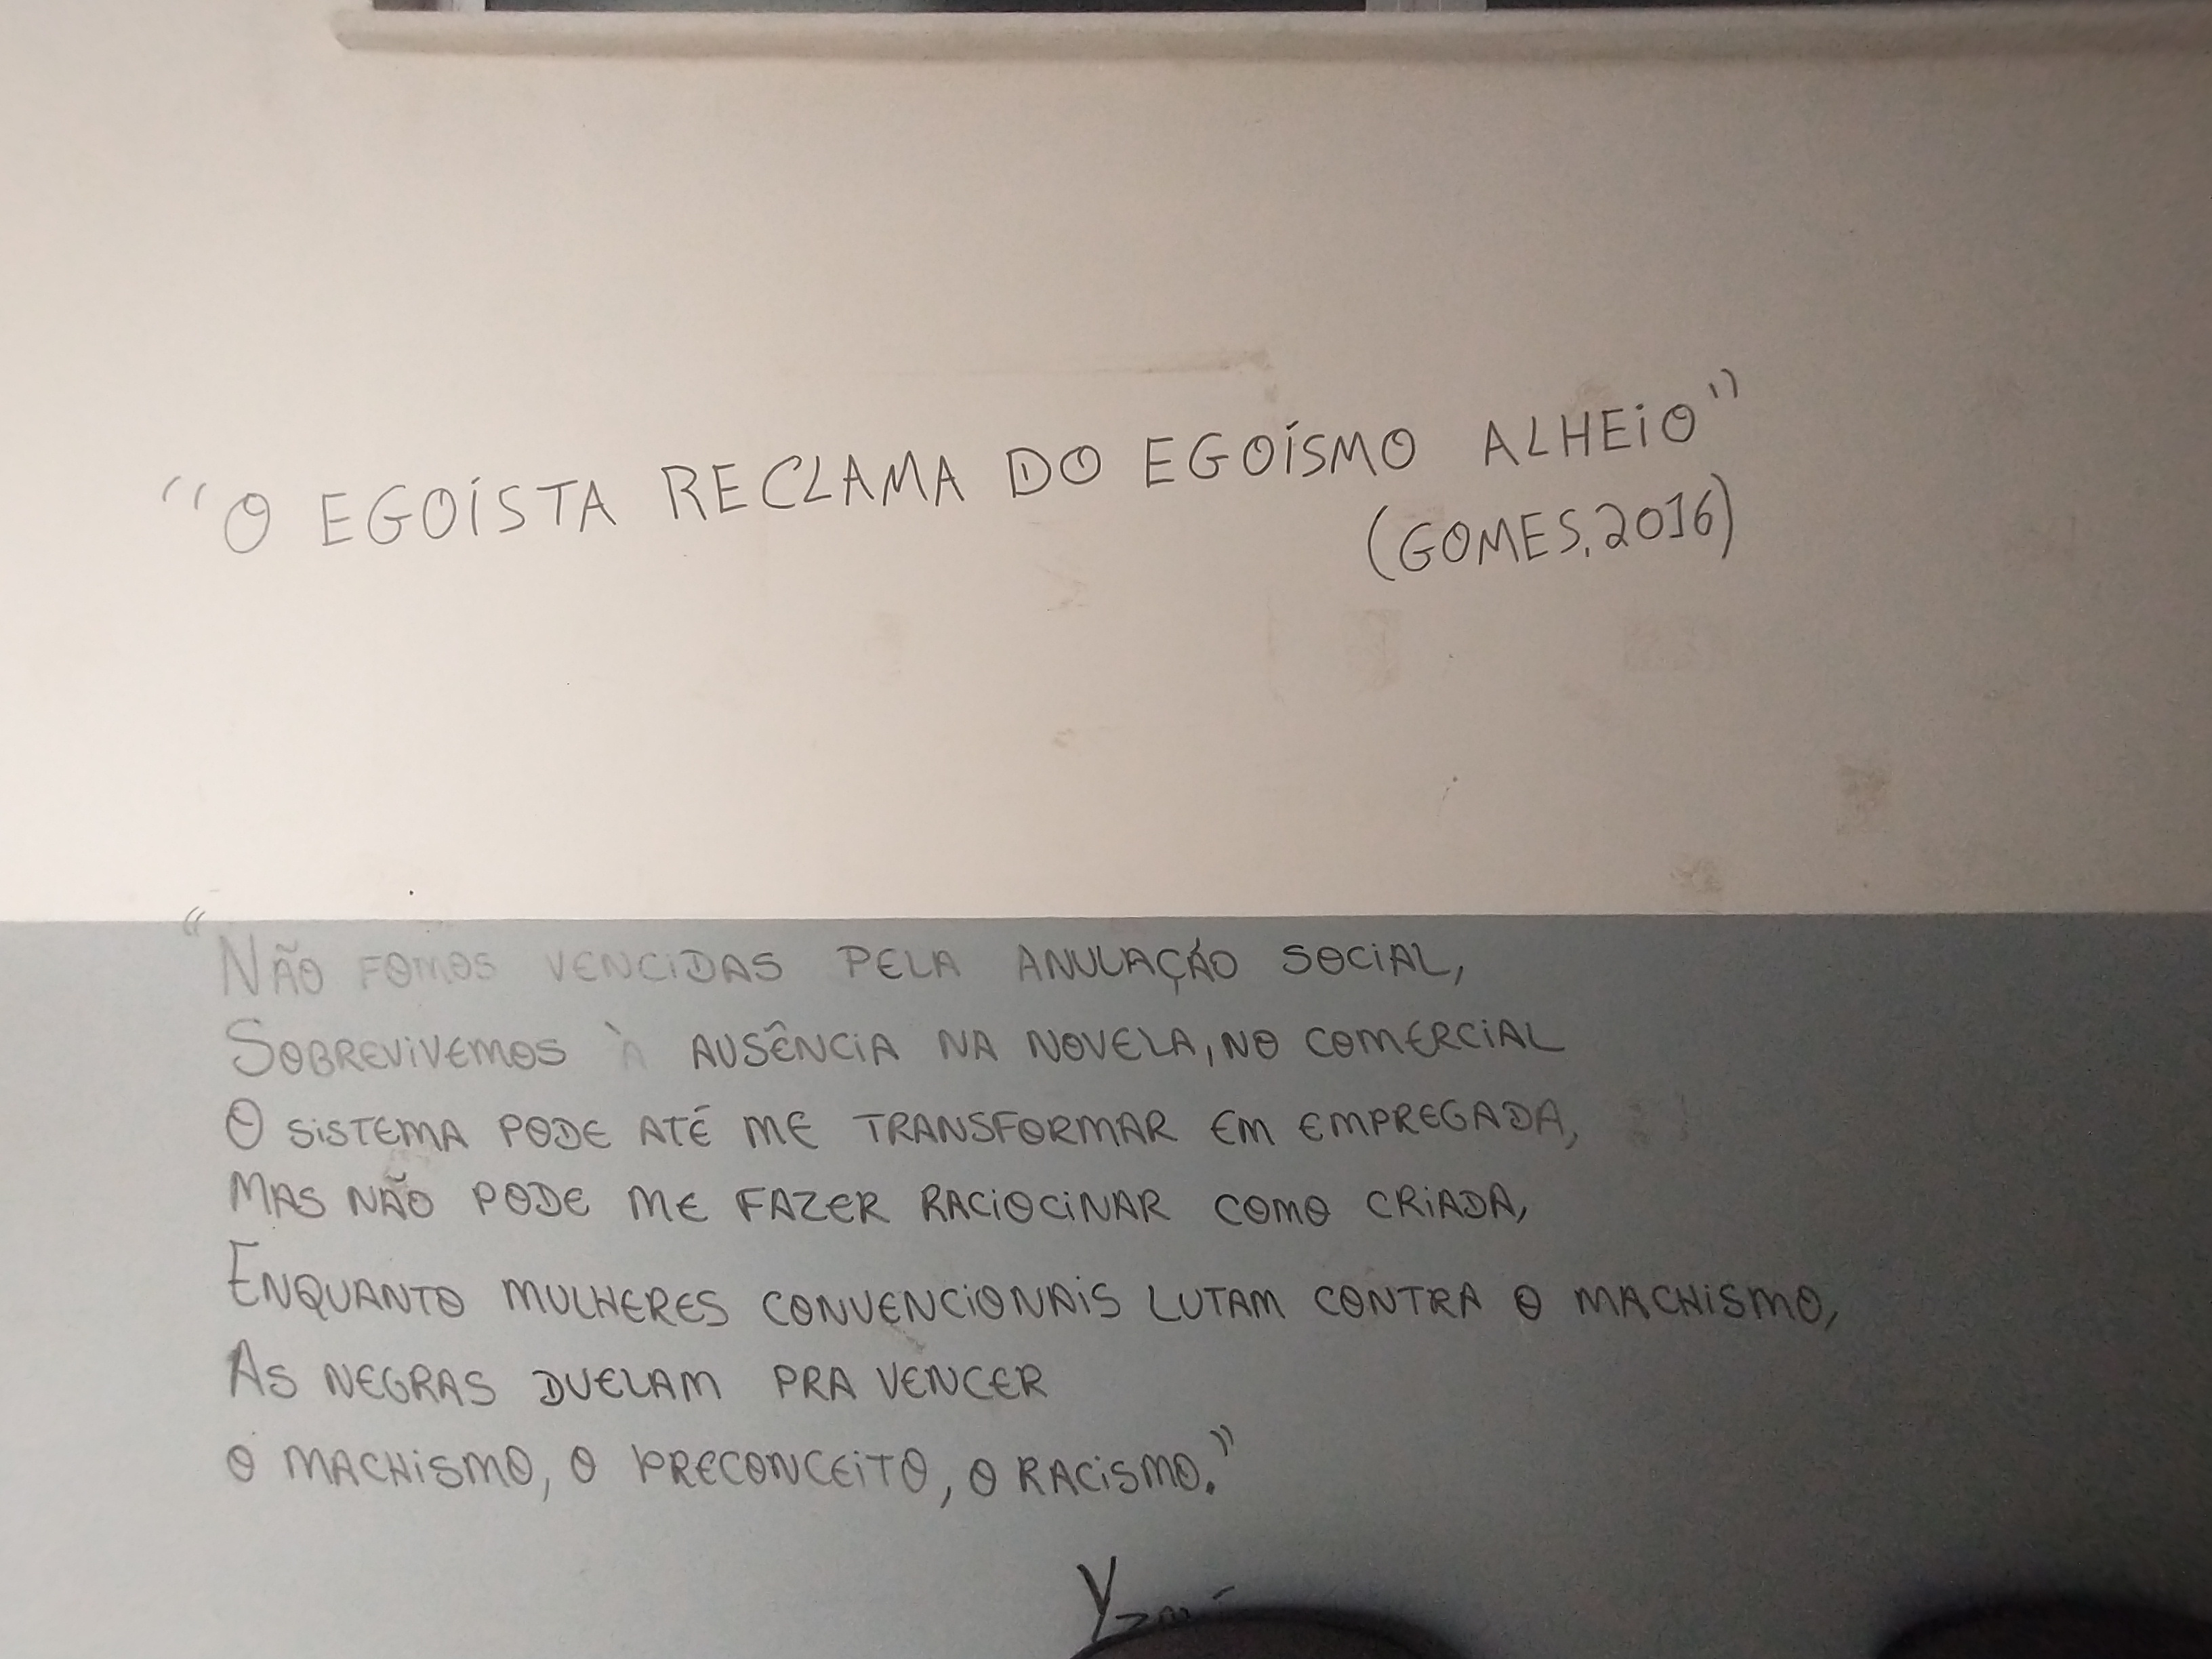 "O EGOÍSTA RECLAMA DO EGOÍSMO ALHEIO"
(GOMES, 2016)
"NÃO FOMOS VENCIDAS PELA ANULAÇÃO SOCIAL,
SOBREVIVEMOS À AUSÊNCIA NA NOVELA, NO COMERCIAL
O SISTEMA PODE ATÉ ME TRANSFORMAR EM EMPREGADA,
MAS NÃO PODE ME FAZER RACIOCINAR COMO CRIADA,
ENQUANTO MULHERES CONVENCIONAIS LUTAM CONTRA O MACHISMO,
AS NEGRAS DUELAM PRA VENCER
O MACHISMO, O PRECONCEITO, O RACISMO."